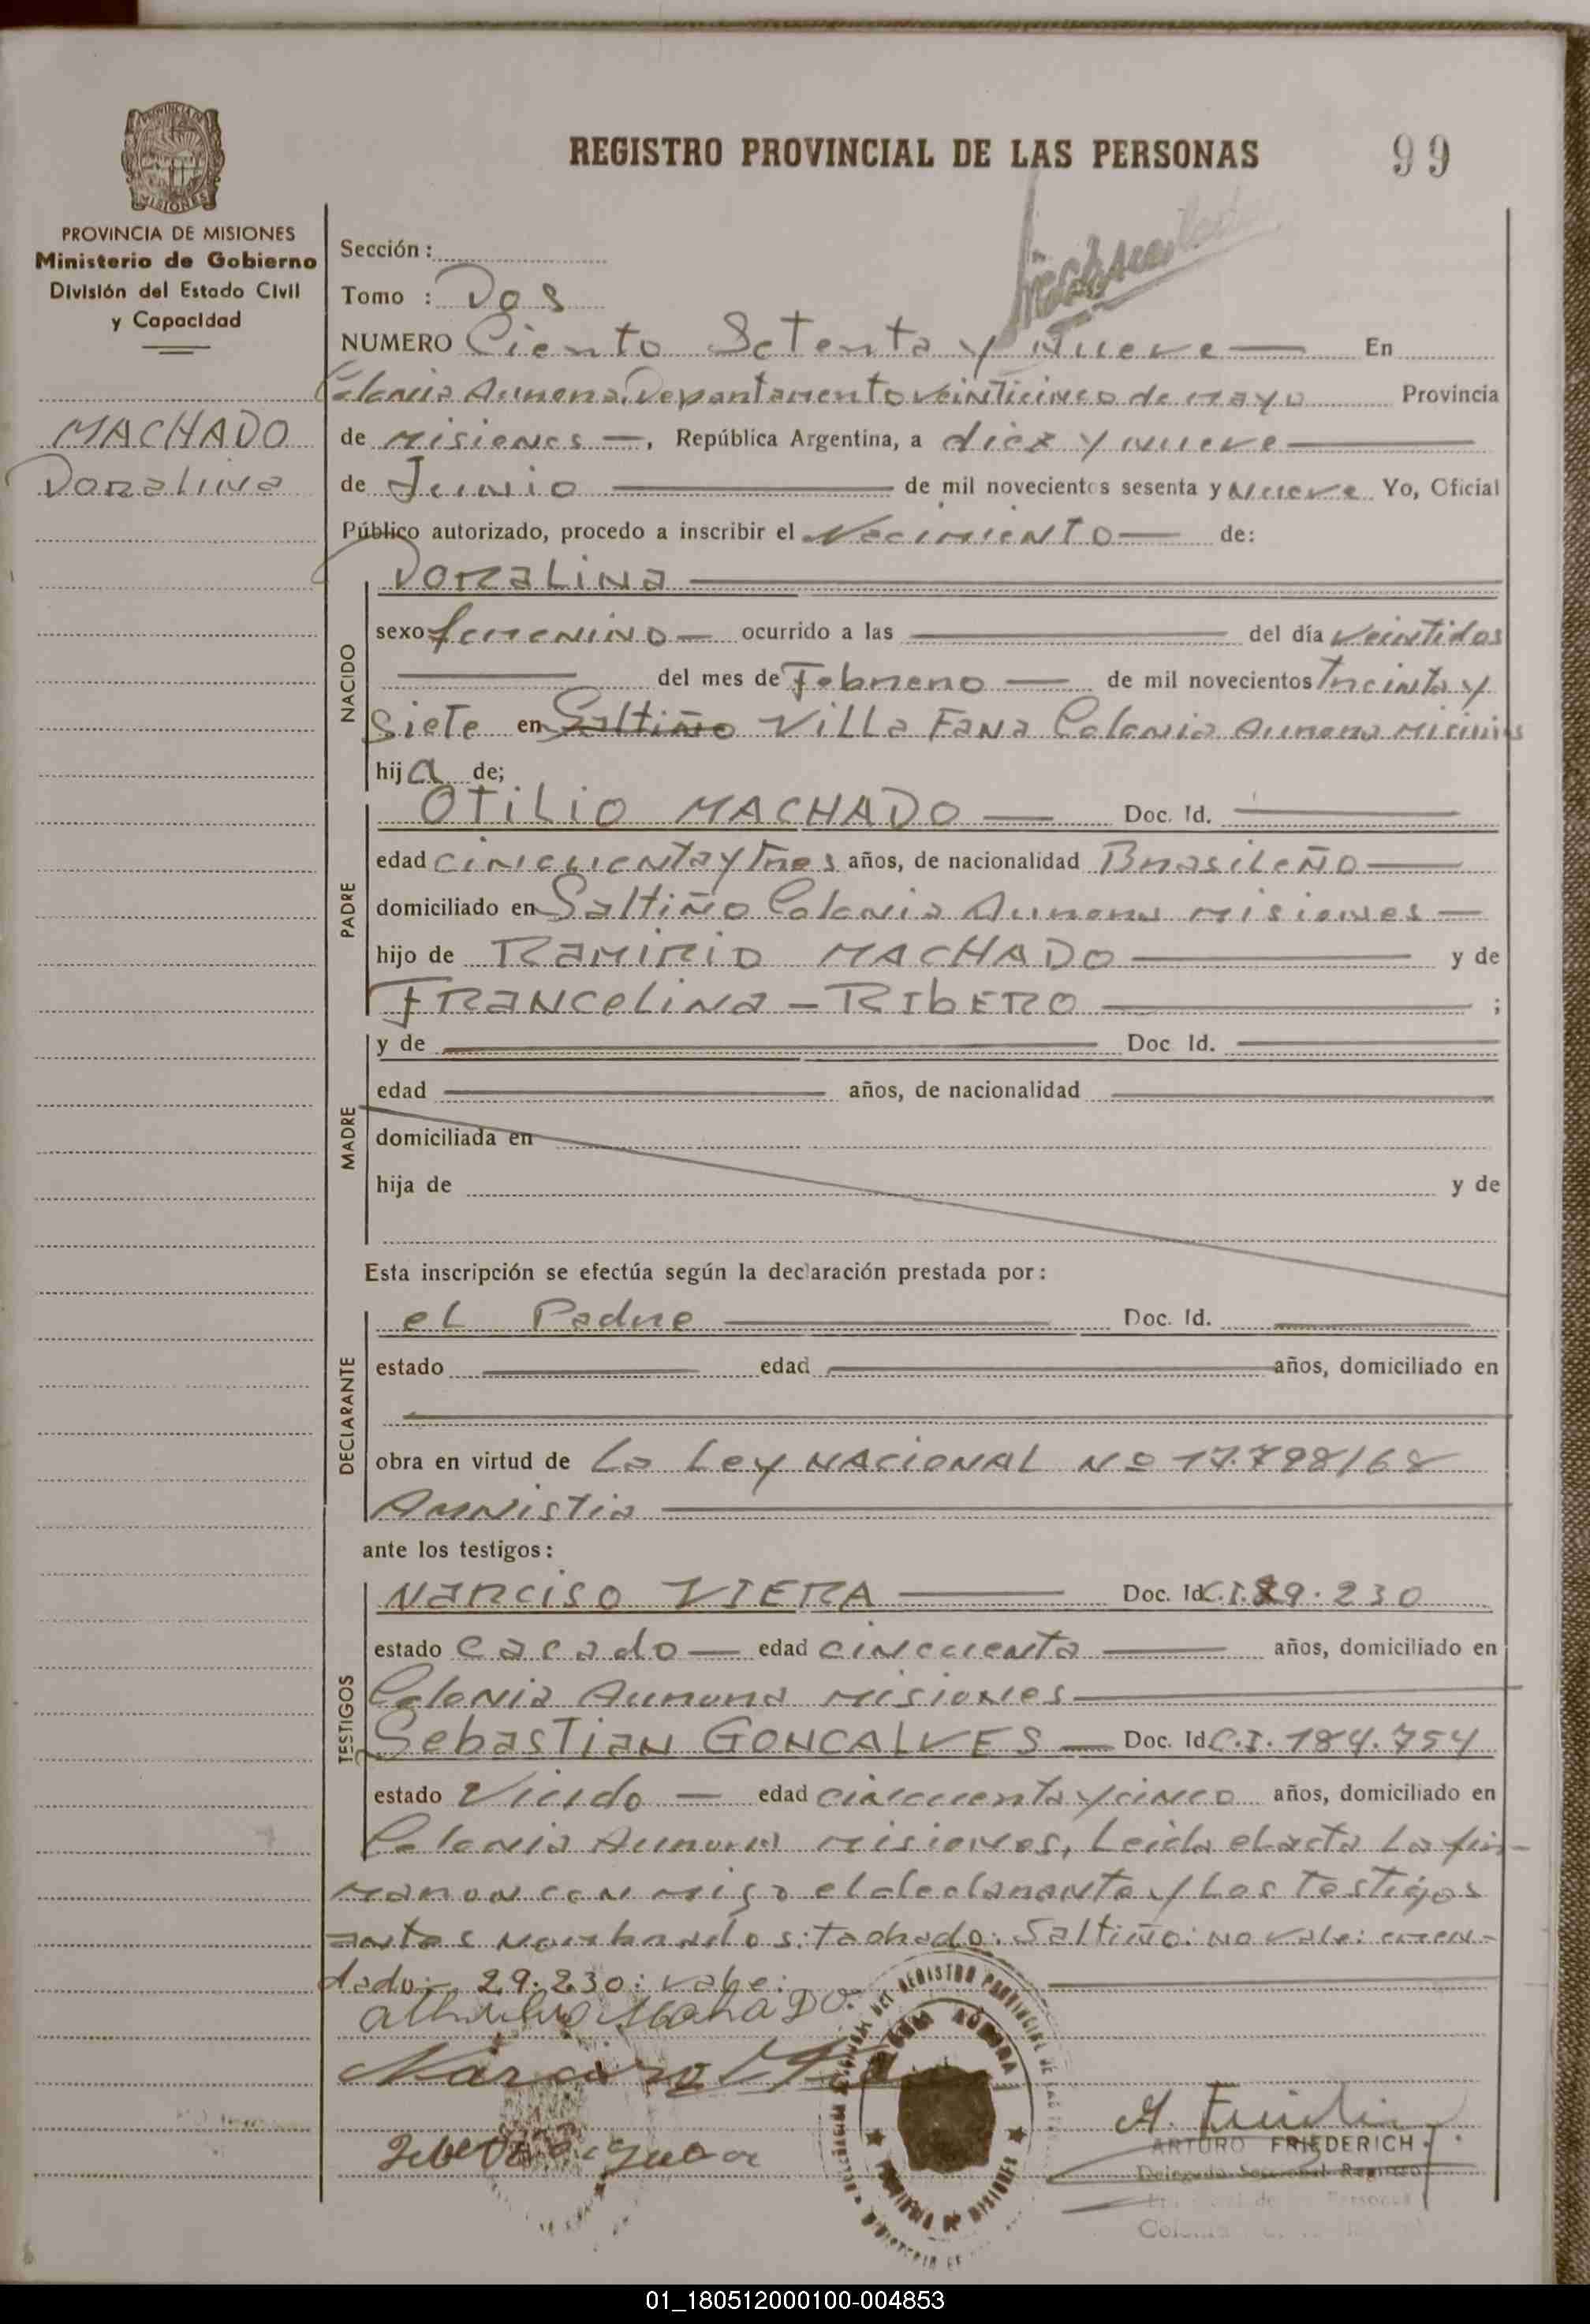 REGISTRO PROVINCIAL DE LAS PERSONAS 99
MISIONES
PROVINCIA DE MISIONES
Ministerio de Gobierno
División del Estado Civil
y Capacidad
MACHADO
Dorzalina
Sección :
Tomo : Dos
NUMERO Ciento Setenta y Nueve — En
Colonia Aurora, Departamento veinticinco de mayo Provincia
de Misiones —, República Argentina, a diez y nueve —
de Junio — de mil novecientos sesenta y Nueve Yo, Oficial
Público autorizado, procedo a inscribir el Nacimiento — de:
NACIDO
DorzaLina —
sexo femenino — ocurrido a las — del día veintidos
— del mes de Febrero — de mil novecientos Treinta y
Siete en Saltiño Villa Fana Colonia Aurora Misiones
hija de;
PADRE
OTiLiO MACHADO — Doc. Id. —
edad cincuenta y tres años, de nacionalidad BrasileÑo —
domiciliado en Saltiño Colonia Aurora misiones —
hijo de RamiriO MACHADO — y de
FRancelina - RIbERO — ;
MADRE
y de — Doc. Id. —
edad — años, de nacionalidad —
domiciliada en
hija de y de
Esta inscripción se efectúa según la declaración prestada por :
DECLARANTE
el Padre — Doc. Id. —
estado — edad — años, domiciliado en
—
obra en virtud de La Ley NACIONAL Nº 17.798/68
Amnistia —
ante los testigos :
TESTIGOS
Narciso VIERA — Doc. Id C.I. 29.230
estado casado — edad cincuenta — años, domiciliado en
Colonia Aurora misiones —
Sebastian GONCALVES — Doc. Id C.I. 184.754
estado Viudo — edad cincuenta y cinco años, domiciliado en
Colonia Aurora misiones, Leida el acta La fir-
maron con migo el declarante y Los Testigos
antes nombrados: tachado: Saltiño: no vale: enmen-
dado: 29.230: vale: —
Machado
Narciso
A. Friederich
ARTURO FRIEDERICH
Delegado Seccional Registro
01_180512000100-004853